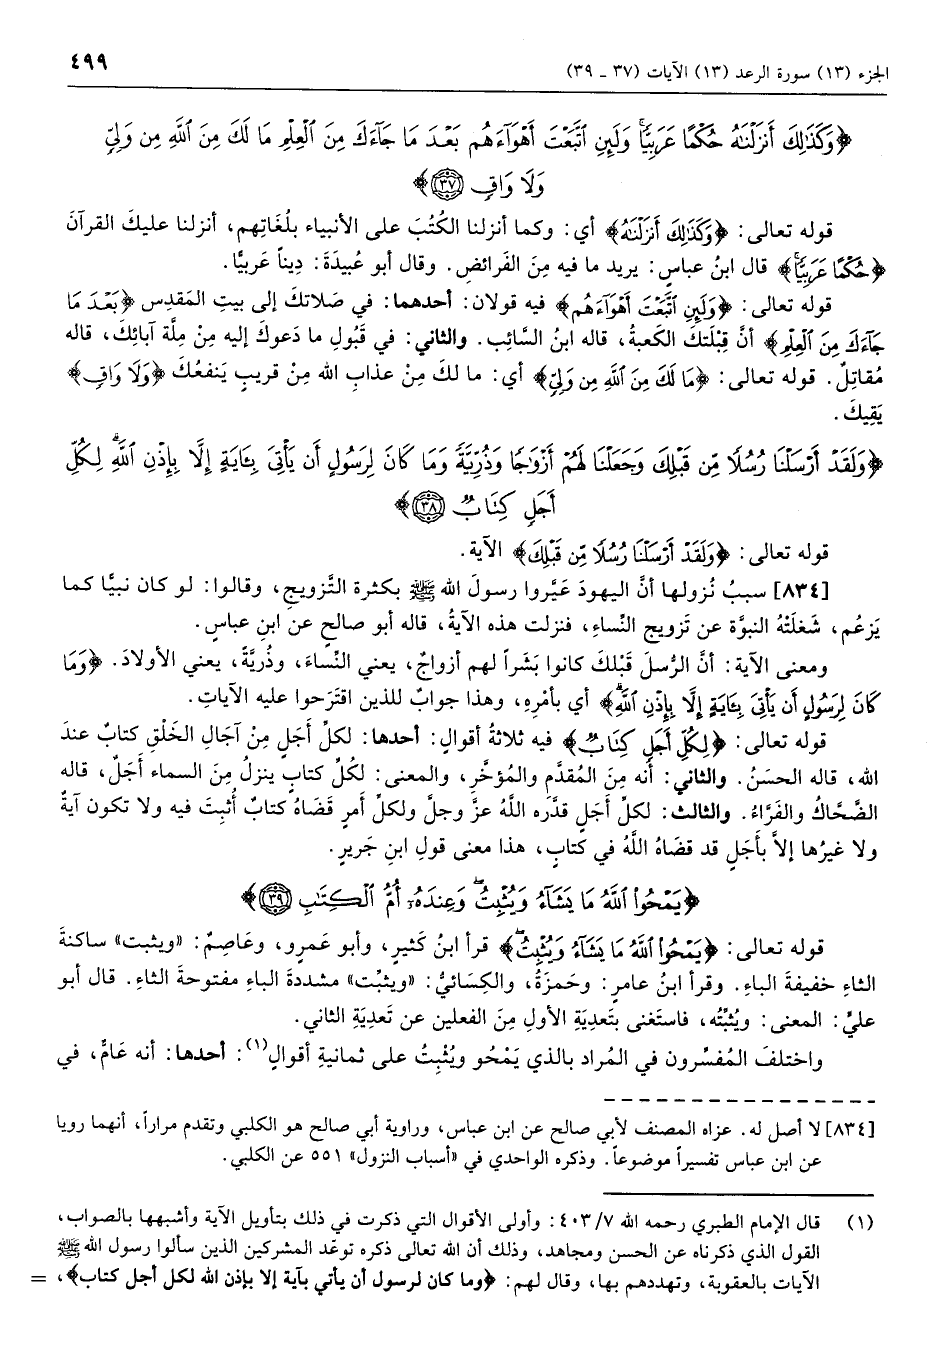 الجزء (١٣) سورة الرعد (١٣) الآيات (٣٧ ـ ٣٩)
٤٩٩
﴿وَكَذَٰلِكَ أَنزَلْنَٰهُ حُكْمًا عَرَبِيًّا ۚ وَلَئِنِ ٱتَّبَعْتَ أَهْوَآءَهُم بَعْدَ مَا جَآءَكَ مِنَ ٱلْعِلْمِ مَا لَكَ مِنَ ٱللَّهِ مِن وَلِيٍّ
وَلَا وَاقٍ ﴿٣٧﴾﴾
قوله تعالى: ﴿وَكَذَٰلِكَ أَنزَلْنَٰهُ﴾ أي: وكما أنزلنا الكُتُبَ على الأنبياء بلُغَاتِهم، أنزلنا عليكَ القرآنَ
﴿حُكْمًا عَرَبِيًّا ۚ﴾ قال ابنُ عباس: يريد ما فيه مِنَ الفَرائضِ. وقال أبو عُبيدَة: دِيناً عَربيًّا.
قوله تعالى: ﴿وَلَئِنِ ٱتَّبَعْتَ أَهْوَآءَهُم﴾ فيه قولان: أحدهما: في صَلاتكَ إلى بيتِ المَقدِس ﴿بَعْدَ مَا
جَآءَكَ مِنَ ٱلْعِلْمِ﴾ أنَّ قِبْلَتكَ الكَعبةُ، قاله ابنُ السَّائِب. والثاني: في قَبُولِ ما دَعوكَ إليه مِنْ مِلَّة آبائِكَ، قاله
مُقاتِلٌ. قوله تعالى: ﴿مَا لَكَ مِنَ ٱللَّهِ مِن وَلِيٍّ﴾ أي: ما لكَ مِنْ عذابِ الله مِنْ قريبٍ يَنفعُكَ ﴿وَلَا وَاقٍ﴾
يَقِيكَ.
﴿وَلَقَدْ أَرْسَلْنَا رُسُلًا مِّن قَبْلِكَ وَجَعَلْنَا لَهُمْ أَزْوَٰجًا وَذُرِّيَّةً ۚ وَمَا كَانَ لِرَسُولٍ أَن يَأْتِىَ بِـَٔايَةٍ إِلَّا بِإِذْنِ ٱللَّهِ ۗ لِكُلِّ
أَجَلٍ كِتَابٌ ﴿٣٨﴾﴾
قوله تعالى: ﴿وَلَقَدْ أَرْسَلْنَا رُسُلًا مِّن قَبْلِكَ﴾ الآية.
[٨٣٤] سببُ نُزولِها أنَّ اليهودَ عَيَّروا رسولَ الله ﷺ بكثرة التَّزويجِ، وقالوا: لو كان نبيًّا كما
يَزعُم، شَغلَتْهُ النبوَّة عن تَزويج النِّساءِ، فنزلت هذه الآيةُ، قاله أبو صالحٍ عن ابنِ عباس.
ومعنى الآية: أنَّ الرُّسلَ قَبْلكَ كانوا بَشَراً لهم أزواجٌ، يعني النِّساءَ، وذُريَّةً، يعني الأولادَ. ﴿وَمَا
كَانَ لِرَسُولٍ أَن يَأْتِىَ بِـَٔايَةٍ إِلَّا بِإِذْنِ ٱللَّهِ ۗ﴾ أي بأمْرِهِ، وهذا جوابٌ للذين اقتَرَحوا عليه الآياتِ.
قوله تعالى: ﴿لِكُلِّ أَجَلٍ كِتَابٌ﴾ فيه ثلاثةُ أقوالٍ: أحدها: لكلِّ أجلٍ مِنْ آجالِ الخَلْقِ كتابٌ عندَ
الله، قاله الحسَنُ. والثاني: أنه مِنَ المُقدَّمِ والمُؤخَّرِ، والمعنى: لكُلِّ كتابٍ ينزلُ مِنَ السماء أجَلٌ، قاله
الضَّحَّاكُ والفَرَّاءُ. والثالث: لكلِّ أجَلٍ قدَّره اللَّهُ عزَّ وجلَّ ولكلِّ أمرٍ قَضَاهُ كتابٌ أُثبِتَ فيه ولا تكون آيةٌ
ولا غيرُها إلاَّ بأَجَلٍ قد قضَاهُ اللَّهُ في كتابٍ، هذا معنى قولِ ابنِ جَريرٍ.
﴿يَمْحُوا۟ ٱللَّهُ مَا يَشَآءُ وَيُثْبِتُ ۖ وَعِندَهُۥٓ أُمُّ ٱلْكِتَٰبِ ﴿٣٩﴾﴾
قوله تعالى: ﴿يَمْحُوا۟ ٱللَّهُ مَا يَشَآءُ وَيُثْبِتُ ۖ﴾ قرأ ابنُ كَثيرٍ، وأبو عَمرٍو، وعَاصِمٌ: «ويثبت» ساكنةَ
الثاءِ خفيفةَ الباءِ. وقرأ ابنُ عامرٍ: وحَمزةُ، والكِسَائيُّ: «ويثبِّت» مشددةَ الباءِ مفتوحةَ الثاءِ. قال أبو
عليٍّ: المعنى: ويُثبِّتُه، فاستَغنى بتَعديَةِ الأولِ مِنَ الفعلَين عن تَعديَةِ الثاني.
واختلفَ المُفسِّرون في المُراد بالذي يَمْحُو ويُثْبِتُ على ثمانيةِ أقوالٍ(١): أحدها: أنه عَامٌّ، في
[٨٣٤] لا أصل له. عزاه المصنف لأبي صالح عن ابن عباس، وراوية أبي صالح هو الكلبي وتقدم مراراً، أنهما رويا
عن ابن عباس تفسيراً موضوعاً. وذكره الواحدي في «أسباب النزول» ٥٥١ عن الكلبي.
(١) قال الإمام الطبري رحمه الله ٤٠٣/٧: وأولى الأقوال التي ذكرت في ذلك بتأويل الآية وأشبهها بالصواب،
القول الذي ذكرناه عن الحسن ومجاهد، وذلك أن الله تعالى ذكره توعّد المشركين الذين سألوا رسول الله ﷺ
الآيات بالعقوبة، وتهددهم بها، وقال لهم: ﴿وما كان لرسول أن يأتي بآية إلا بإذن الله لكل أجل كتاب﴾، =